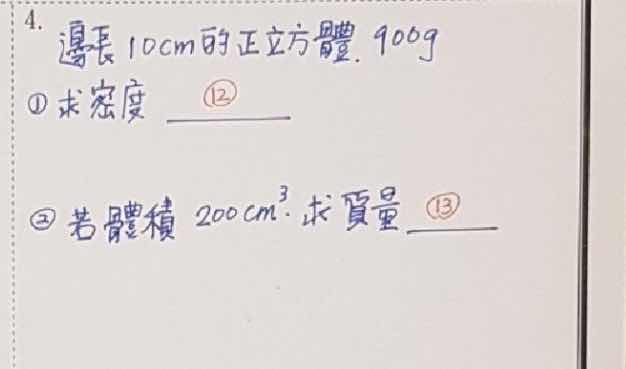 4.
邊長10cm的正立方體. 900g
① 求密度 ⑫
② 若體積 200cm³. 求質量 ⑬